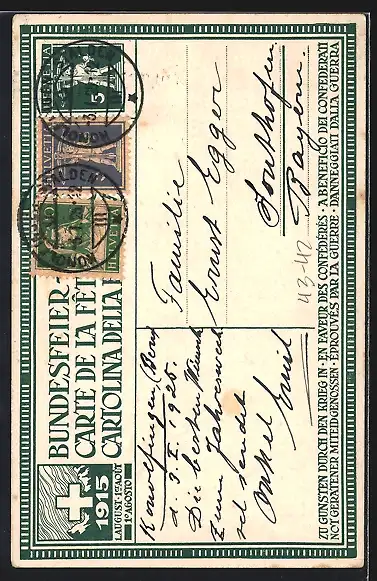 BUNDESFEIER
CARTE DE LA FÊT
CARTOLINA DELLA F
1915
1.AUGUST-1ER AOÛT
1° AGOSTO
HELVETIA
5
HELVETIA
HELVETIA
10
Konolfingen, Bern
d. 3. I. 1925.
Die besten Wünsche
zum Jahreswechsel
sendet
Onkel Ernst
Familie
Ernst Egger
Sonthofen
Bayern.
43-42
ZU GUNSTEN DURCH DEN KRIEG IN · EN FAVEUR DES CONFÉDÉRÉS · A BENEFICIO DEI CONFEDERATI
NOT GERATENER MITEIDGENOSSEN · ÉPROUVÉS PAR LA GUERRE · DANNEGGIATI DALLA GUERRA